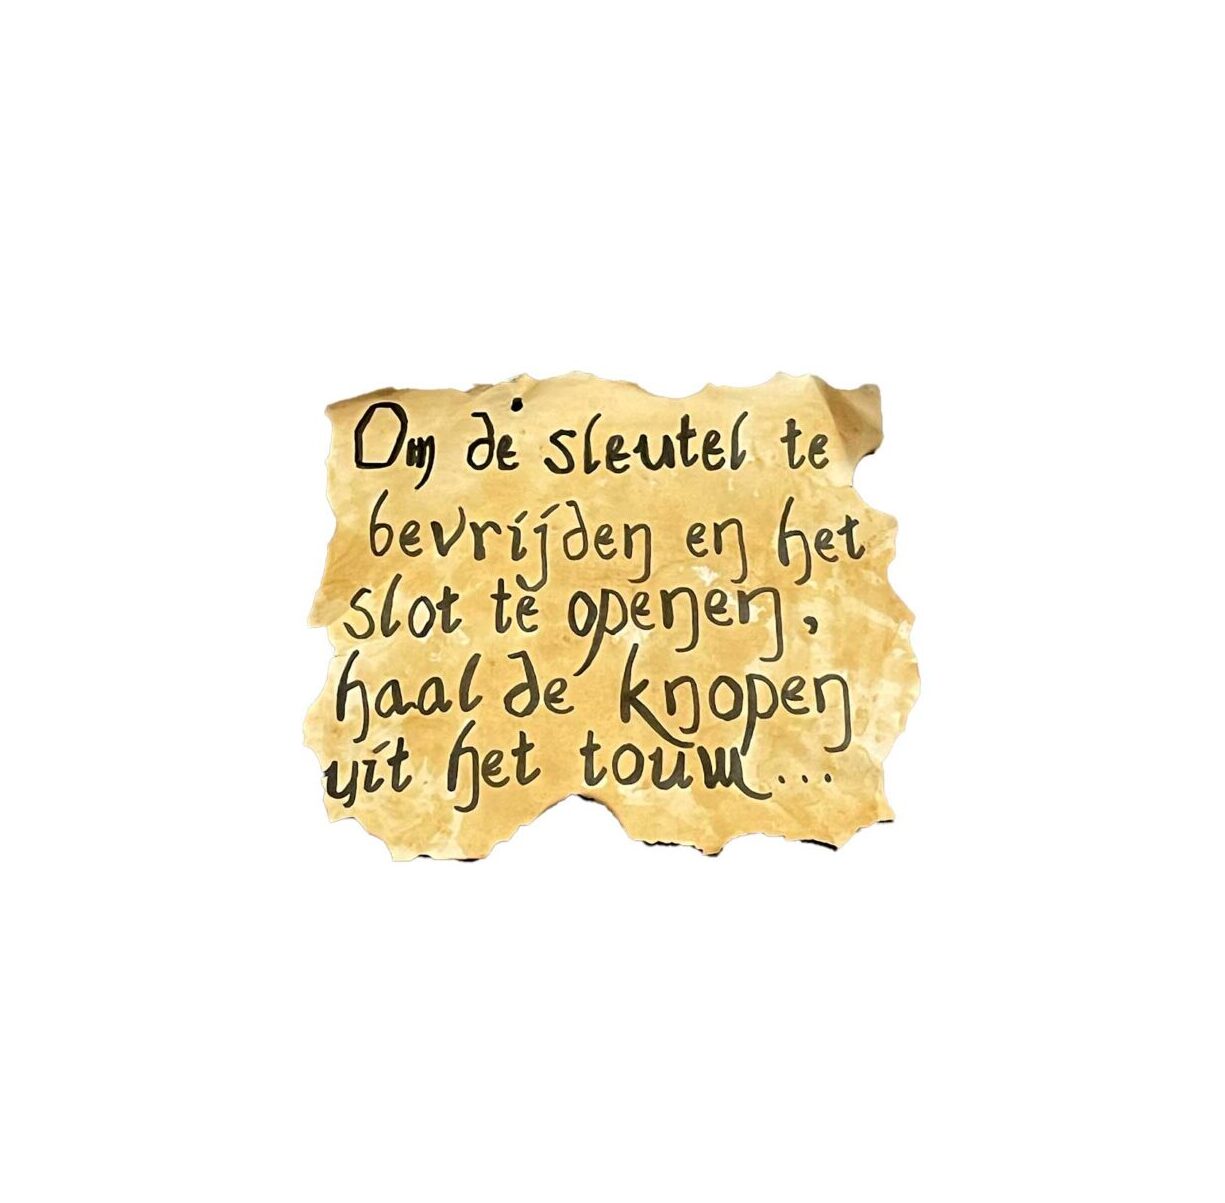 Om de sleutel te
bevrijden en het
slot te openen,
haal de knopen
uit het touw...